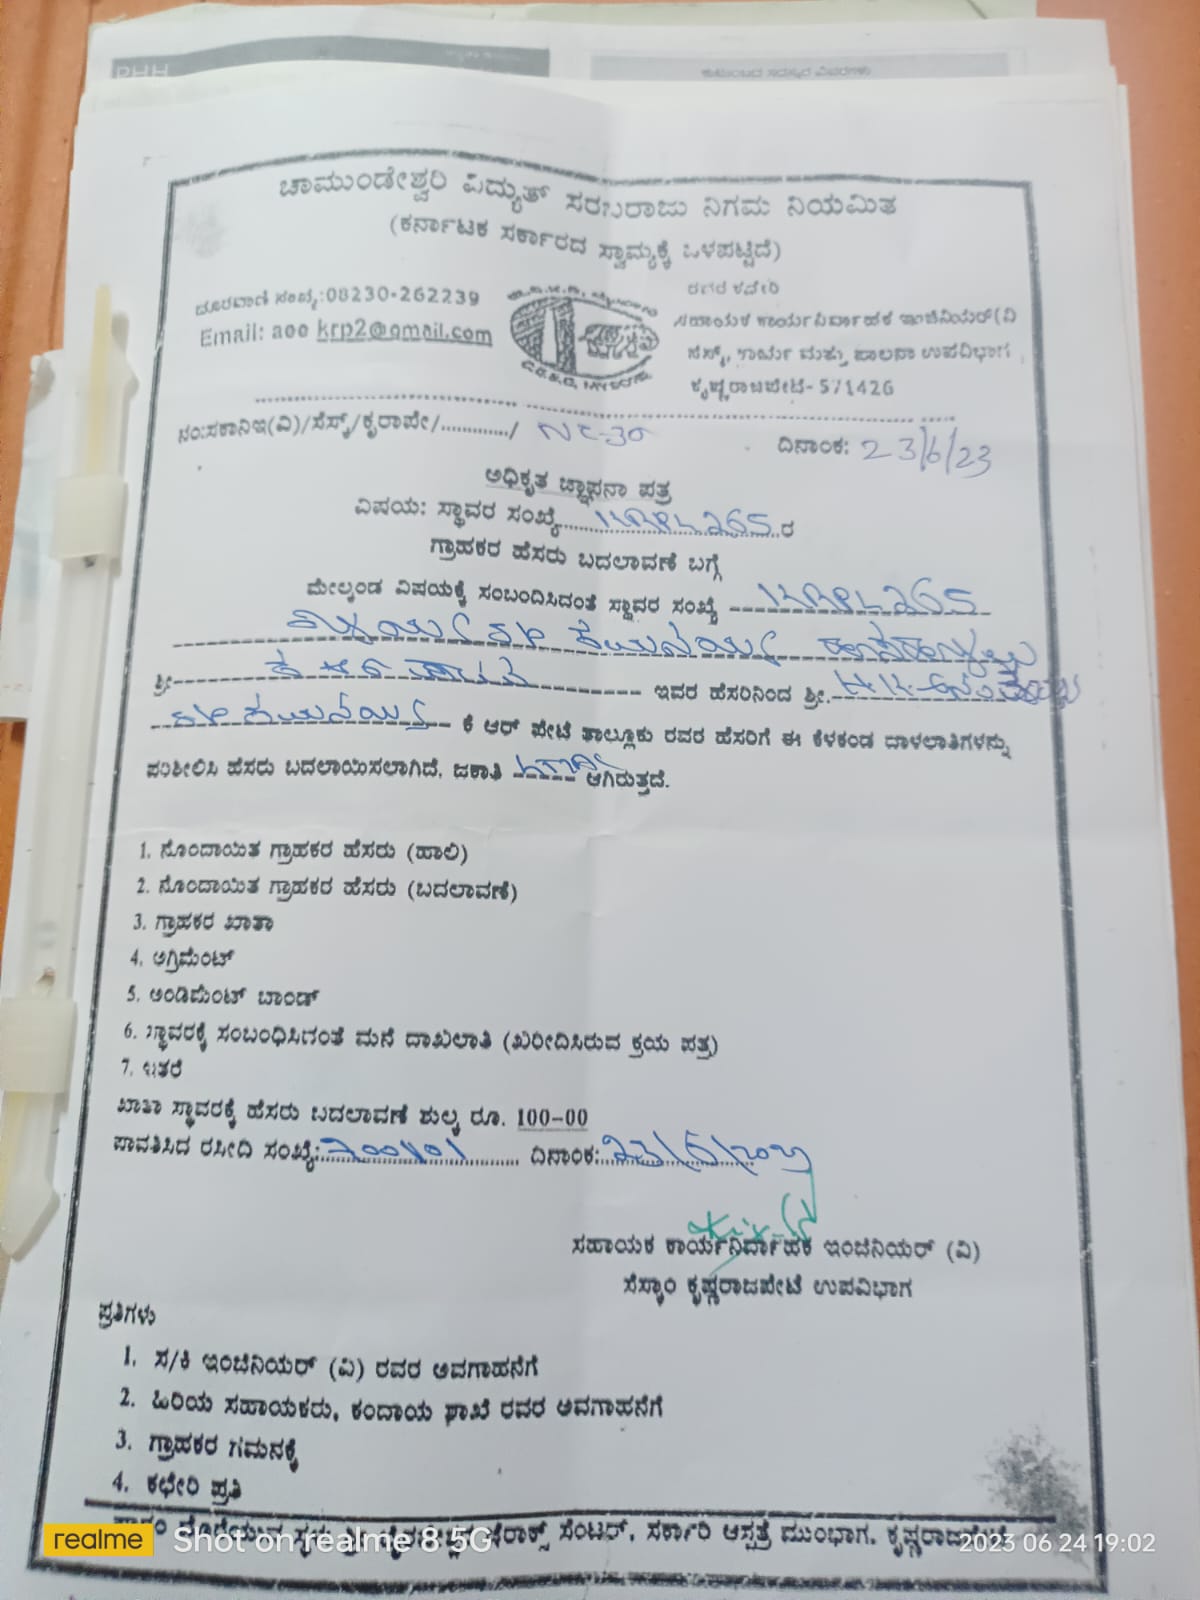 PHH
ಕುಟುಂಬದ ಸದಸ್ಯರ ವಿವರಗಳು
ಚಾಮುಂಡೇಶ್ವರಿ ವಿದ್ಯುತ್ ಸರಬರಾಜು ನಿಗಮ ನಿಯಮಿತ
(ಕರ್ನಾಟಕ ಸರ್ಕಾರದ ಸ್ವಾಮ್ಯಕ್ಕೆ ಒಳಪಟ್ಟಿದೆ)
ದೂರವಾಣಿ ಸಂಖ್ಯೆ:08230-262239
Email: aee krp2@gmail.com
ರವರ ಕಚೇರಿ
ಸಹಾಯಕ ಕಾರ್ಯನಿರ್ವಾಹಕ ಇಂಜಿನಿಯರ್(ವಿ
ಸೆಸ್ಕ್, ಕಾರ್ಯ ಮತ್ತು ಪಾಲನಾ ಉಪವಿಭಾಗ
ಕೃಷ್ಣರಾಜಪೇಟೆ-571426
ನಂ:ಸಕಾನಿಇ(ವಿ)/ಸೆಸ್ಕ್/ಕೃರಾಪೇ/............/
ದಿನಾಂಕ: 23/6/23
ಅಧಿಕೃತ ಜ್ಞಾಪನಾ ಪತ್ರ
ವಿಷಯ: ಸ್ಥಾವರ ಸಂಖ್ಯೆ KRPL 265 ರ
ಗ್ರಾಹಕರ ಹೆಸರು ಬದಲಾವಣೆ ಬಗ್ಗೆ
ಮೇಲ್ಕಂಡ ವಿಷಯಕ್ಕೆ ಸಂಬಂದಿಸಿದಂತೆ ಸ್ಥಾವರ ಸಂಖ್ಯೆ KRPL 265
ಶ್ರೀ ಇವರ ಹೆಸರಿನಿಂದ ಶ್ರೀ.
ಕೆ ಆರ್ ಪೇಟೆ ತಾಲ್ಲೂಕು ರವರ ಹೆಸರಿಗೆ ಈ ಕೆಳಕಂಡ ದಾಳಲಾತಿಗಳನ್ನು
ಪರಿಶೀಲಿಸಿ ಹೆಸರು ಬದಲಾಯಿಸಲಾಗಿದೆ. ಜಕಾತಿ ಆಗಿರುತ್ತದೆ.
1. ನೊಂದಾಯಿತ ಗ್ರಾಹಕರ ಹೆಸರು (ಹಾಲಿ)
2. ನೊಂದಾಯಿತ ಗ್ರಾಹಕರ ಹೆಸರು (ಬದಲಾವಣೆ)
3. ಗ್ರಾಹಕರ ಖಾತಾ
4. ಅಗ್ರಿಮೆಂಟ್
5. ಅಂಡಿಮೆಂಟ್ ಬಾಂಡ್
6. ಸ್ಥಾವರಕ್ಕೆ ಸಂಬಂಧಿಸಿದಂತೆ ಮನೆ ದಾಖಲಾತಿ (ಖರೀದಿಸಿರುವ ಕ್ರಯ ಪತ್ರ)
7. ಇತರೆ
ಖಾತಾ ಸ್ಥಾವರಕ್ಕೆ ಹೆಸರು ಬದಲಾವಣೆ ಶುಲ್ಕ ರೂ. 100-00
ಪಾವತಿಸಿದ ರಸೀದಿ ಸಂಖ್ಯೆ: ದಿನಾಂಕ:
ಸಹಾಯಕ ಕಾರ್ಯನಿರ್ವಾಹಕ ಇಂಜಿನಿಯರ್ (ವಿ)
ಸೆಸ್ಕಾಂ ಕೃಷ್ಣರಾಜಪೇಟೆ ಉಪವಿಭಾಗ
ಪ್ರತಿಗಳು
1. ಸ/ಕಿ ಇಂಜಿನಿಯರ್ (ವಿ) ರವರ ಅವಗಾಹನೆಗೆ
2. ಹಿರಿಯ ಸಹಾಯಕರು, ಕಂದಾಯ ಶಾಖೆ ರವರ ಅವಗಾಹನೆಗೆ
3. ಗ್ರಾಹಕರ ಗಮನಕ್ಕೆ
4. ಕಛೇರಿ ಪ್ರತಿ
ಜೆರಾಕ್ಸ್ ಸೆಂಟರ್, ಸರ್ಕಾರಿ ಆಸ್ಪತ್ರೆ ಮುಂಭಾಗ, ಕೃಷ್ಣರಾಜಪೇಟೆ
realme Shot on realme 8 5G
2023 06 24 19:02